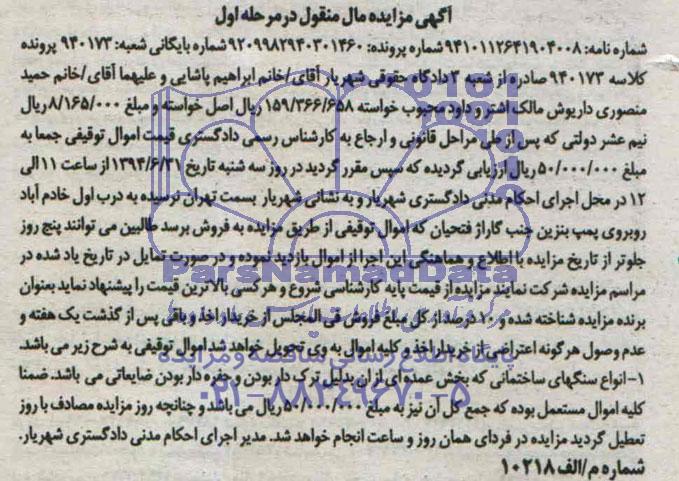 آگهی مزایده مال منقول در مرحله اول
شماره نامه: ۹۴۱۰۱۱۲۶۴۱۹۰۴۰۰۸ شماره پرونده: ۹۲۰۹۹۸۲۹۴۰۳۰۱۴۶۰ شماره بایگانی شعبه: ۹۴۰۱۷۳ پرونده
کلاسه ۹۴۰۱۷۳ صادره از شعبه ۳ دادگاه حقوقی شهریار آقای/خانم ابراهیم پاشایی و علیهما آقای/خانم حمید
منصوری داریوش مالک اشتر و داود محبوب خواسته ۱۵۹/۳۶۶/۶۵۸ ریال اصل خواسته و مبلغ ۸/۱۶۵/۰۰۰ ریال
نیم عشر دولتی که پس از طی مراحل قانونی و ارجاع به کارشناس رسمی دادگستری قیمت اموال توقیفی جمعا به
مبلغ ۵۰/۰۰۰/۰۰۰ ریال ارزیابی گردیده که سپس مقرر گردید در روز سه شنبه تاریخ ۱۳۹۴/۶/۳۱ از ساعت ۱۱ الی
۱۲ در محل اجرای احکام مدنی دادگستری شهریار و به نشانی شهریار بسمت تهران نرسیده به درب اول خادم آباد
روبروی پمپ بنزین جنب گاراژ فتحیان که اموال توقیفی از طریق مزایده به فروش برسد طالبین می توانند پنج روز
جلوتر از تاریخ مزایده با اطلاع و هماهنگی این اجرا از اموال بازدید نموده و در صورت تمایل در تاریخ یاد شده در
مراسم مزایده شرکت نمایند مزایده از قیمت پایه کارشناسی شروع و هر کسی بالاترین قیمت را پیشنهاد نماید بعنوان
برنده مزایده شناخته شده و ۱۰ درصد از کل مبلغ فروش فی المجلس از خریدار اخذ و باقی پس از گذشت یک هفته و
عدم وصول هر گونه اعتراضی از خریدار اخذ و کلیه اموال به وی تحویل خواهد شد اموال توقیفی به شرح زیر می باشد.
۱- انواع سنگهای ساختمانی که بخش عمده ای از ان بدلیل ترک دار بودن و حفره دار بودن ضایعاتی می باشد. ضمنا
کلیه اموال مستعمل بوده که جمع کل آن نیز به مبلغ ۵۰/۰۰۰/۰۰۰ ریال می باشد و چنانچه روز مزایده مصادف با روز
تعطیل گردید مزایده در فردای همان روز و ساعت انجام خواهد شد. مدیر اجرای احکام مدنی دادگستری شهریار.
شماره م/الف ۱۰۲۱۸
ParsNamadData
پایگاه اطلاع رسانی مناقصه و مزایده
۰۲۱-۸۸۳۴۹۶۷۰-۵